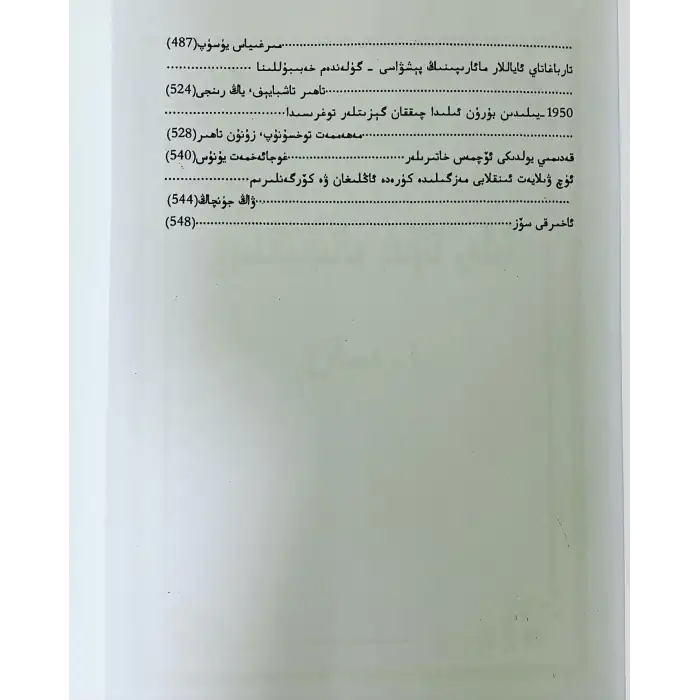 .............................................................مىرغىياس يۈسۈپ(487)
تارباغاتاي ئاياللار مائارىپىنىڭ پېشۋاسى - گۈلەندەم خەبىبۇللىنا ....................
....................................................تاھىر تاشبايېف، ياڭ رىنجى(524)
1950-يىلىدىن بۇرۇن ئىلىدا چىققان گېزىتلەر توغرىسىدا..........................
.............................................مەھەممەت توخسۇنۇپ، زۇنۇن تاھىر(528)
قەدىمىي يولدىكى ئۆچمەس خاتىرىلەر.........................غوجائەخمەت يۇنۇس(540)
ئۈچ ۋىلايەت ئىنقىلابى مەزگىلىدە كۈرەدە ئاڭلىغان ۋە كۆرگەنلىرىم..................
....................................................................ۋاڭ جۈنچاڭ(544)
ئاخىرقى سۆز.....................................................................(548)